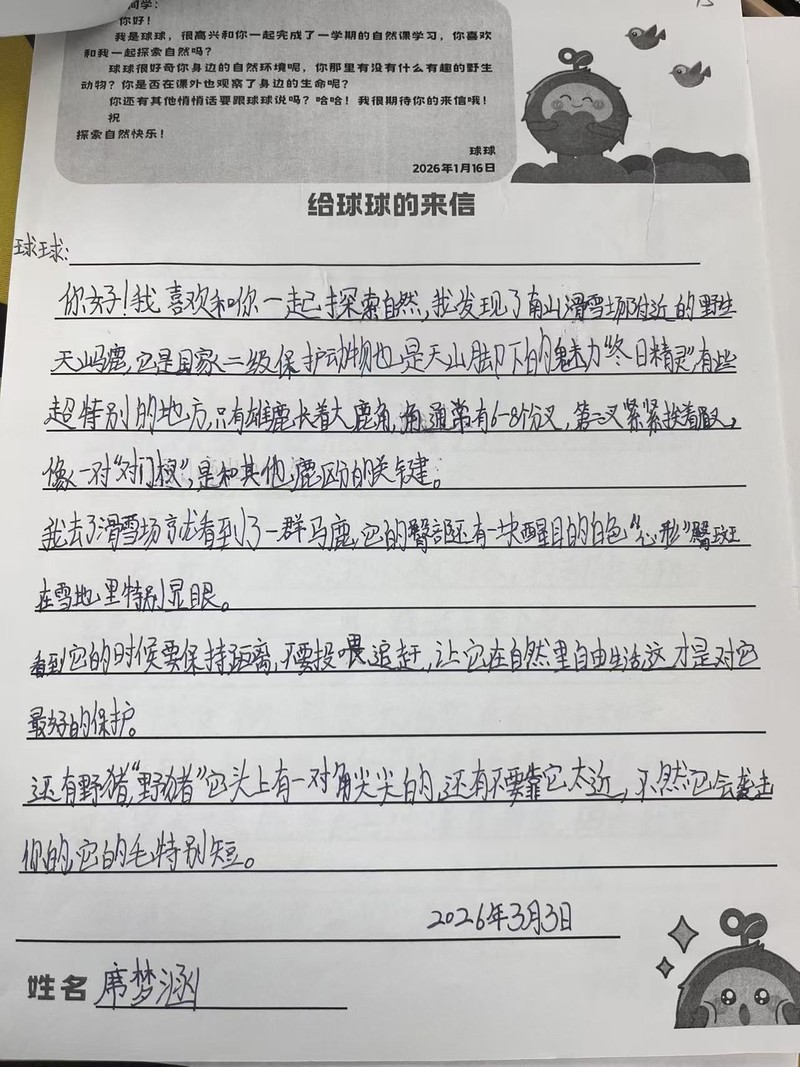 同学：
你好！
我是球球，很高兴和你一起完成了一学期的自然课学习，你喜欢
和我一起探索自然吗？
球球很好奇你身边的自然环境呢，你那里有没有什么有趣的野生
动物？你是否在课外也观察了身边的生命呢？
你还有其他悄悄话要跟球球说吗？哈哈！我很期待你的来信哦！
祝
探索自然快乐！
球球
2026年1月16日
给球球的来信
球球：
你好！我喜欢和你一起探索自然，我发现了南山滑雪场附近的野生
天山马鹿，它是国家二级保护动物也是天山脚下的魅力“冬日精灵”有些
超特别的地方，只有雄鹿长着大鹿角，角通常有6-8个分叉，第二叉紧紧挨着眉叉，
像一对“对门杈”，是和其他鹿区分的关键。
我去了滑雪场就看到了一群马鹿，它的臀部还有一块醒目的白色“心形”臀斑
在雪地里特别显眼。
看到它的时候要保持距离，不要投喂追赶，让它在自然里自由生活这才是对它
最好的保护。
还有野猪，“野猪”它头上有一对角尖尖的，还有不要靠它太近，不然它会袭击
你的，它的毛特别短。
2026年3月3日
姓名 席梦涵